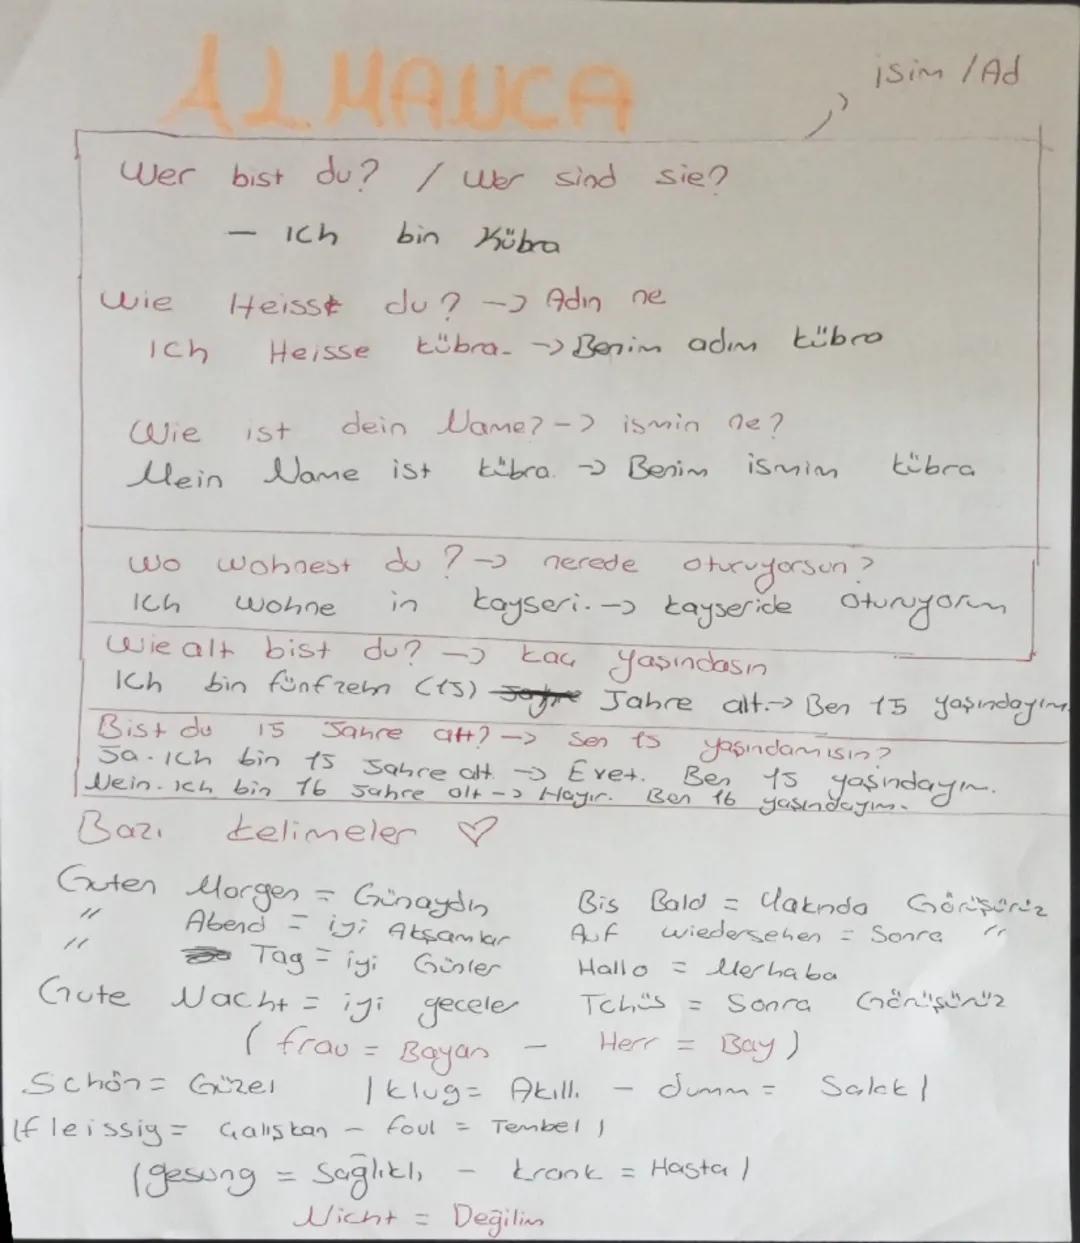 ALMANCA
isim / Ad
Wer bist du? / Wer sind sie?
- Ich bin Kübra
Wie Heisst du? -> Adın ne
Ich Heisse Kübra. -> Benim adım Kübra
Wie ist dein Name? -> ismin ne?
Mein Name ist Kübra. -> Benim ismim Kübra
Wo wohnest du? -> nerede oturuyorsun?
Ich wohne in Kayseri. -> Kayseride oturuyorum
Wie alt bist du? -> kaç yaşındasın
Ich bin fünfzehn (15) Jahre alt. -> Ben 15 yaşındayım
Bist du 15 Jahre alt? -> Sen 15 yaşındamısın?
Ja. Ich bin 15 Jahre alt -> Evet. Ben 15 yaşındayım.
Nein. Ich bin 16 Jahre alt -> Hayır. Ben 16 yaşındayım.
Bazı Kelimeler ♡
Guten Morgen = Günaydın
" Abend = iyi Akşamlar
" Tag = iyi Günler
Gute Nacht = iyi geceler
Bis Bald = Yakında Görüşürüz
Auf wiedersehen = Sonra "
Hallo = Merhaba
Tchüs = Sonra Görüşürüz
(frau = Bayan - Herr = Bay)
Schön = Güzel | klug = Akıllı - dumm = Salak |
| fleissig = Çalışkan - foul = Tembel |
| gesung = Sağlıklı - krank = Hasta |
Nicht = Değilim